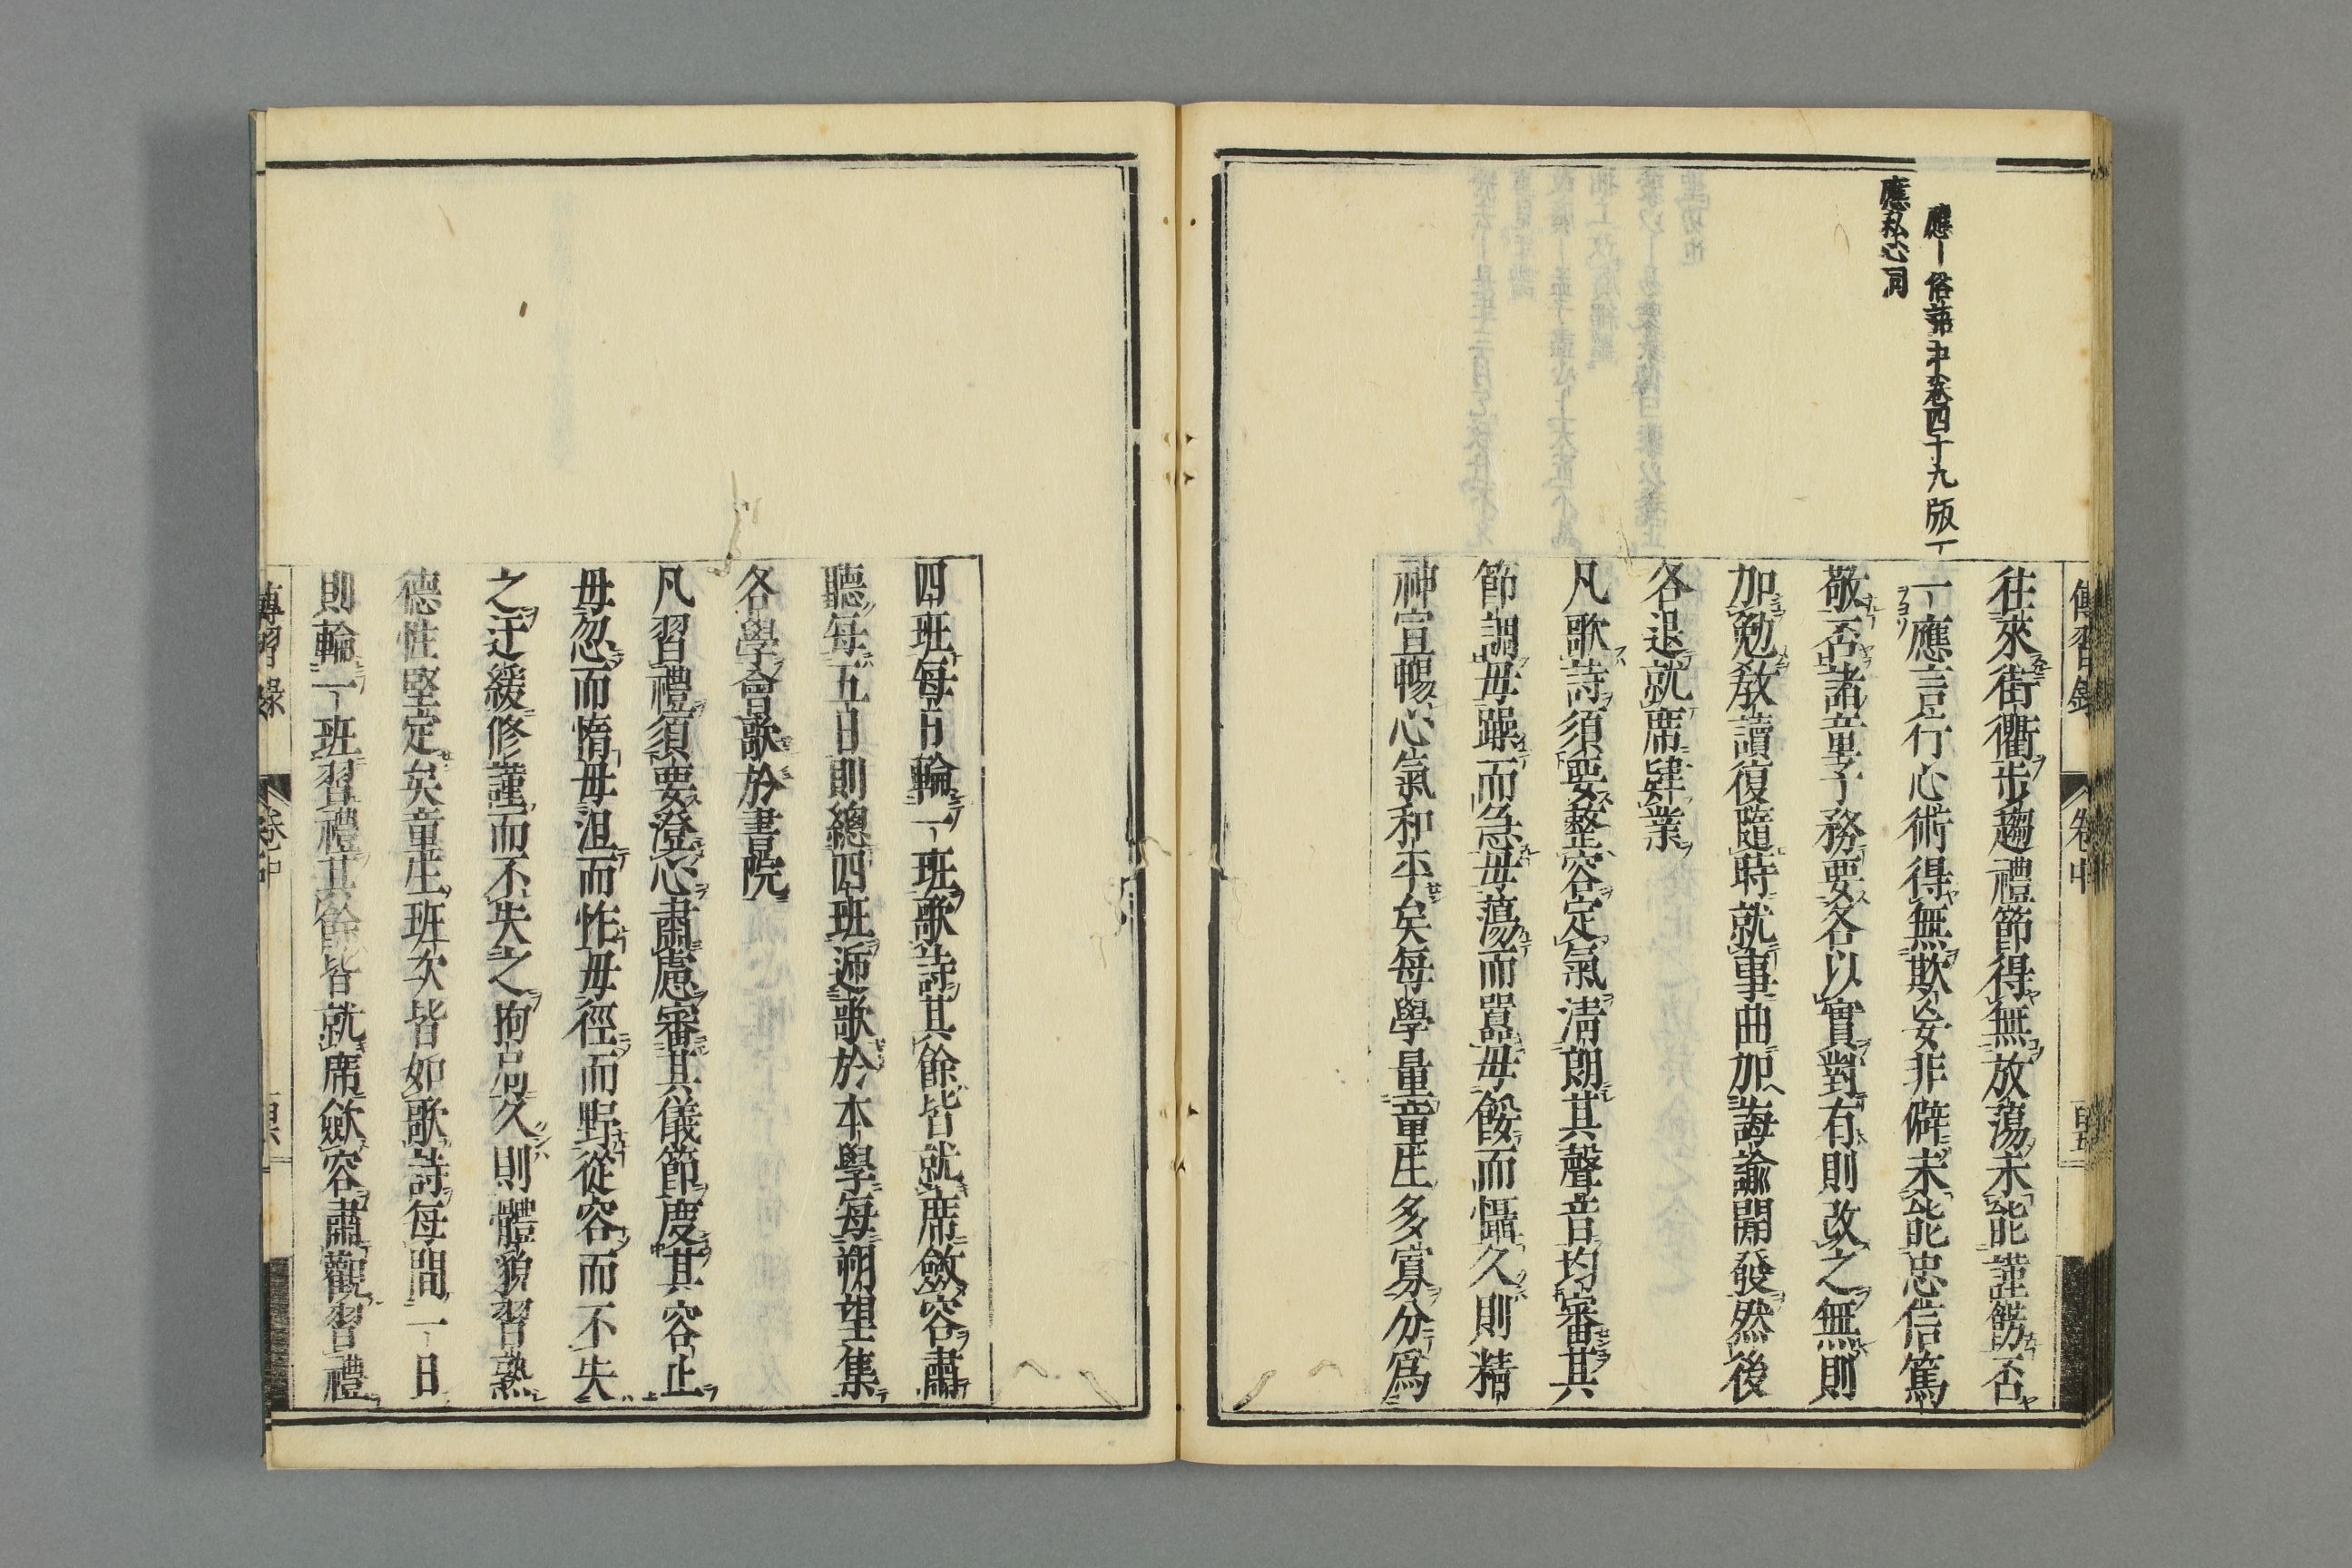 應一俗語中卷四十九版一
應私心同
往來街衢步趨禮節得無放蕩未能謹飭否
一應言行心術得無欺妄非僻未能忠信篤
敬否諸童子務要各以實對有則改之無則
加勉教讀復隨時就事曲加誨諭開發然後
各退就席肄業
凡歌詩須要整容定氣清朗其聲音均審其
節調毋躁而急毋蕩而囂毋餒而懾久則精
神宣暢心氣和平矣每學量童生多寡分爲
四班每日輪一班歌詩其餘皆就席斂容肅
聽每五日則總四班遞歌於本學每朔望集
各學會歌於書院
凡習禮須要澄心肅慮審其儀節度其容止
毋忽而惰毋沮而怍毋徑而野從容而不失
之迂緩修謹而不失之拘局久則體貌習熟
德性堅定矣童生班次皆如歌詩每間一日
則輪一班習禮其餘皆就席斂容肅觀習禮
傳習錄 卷中